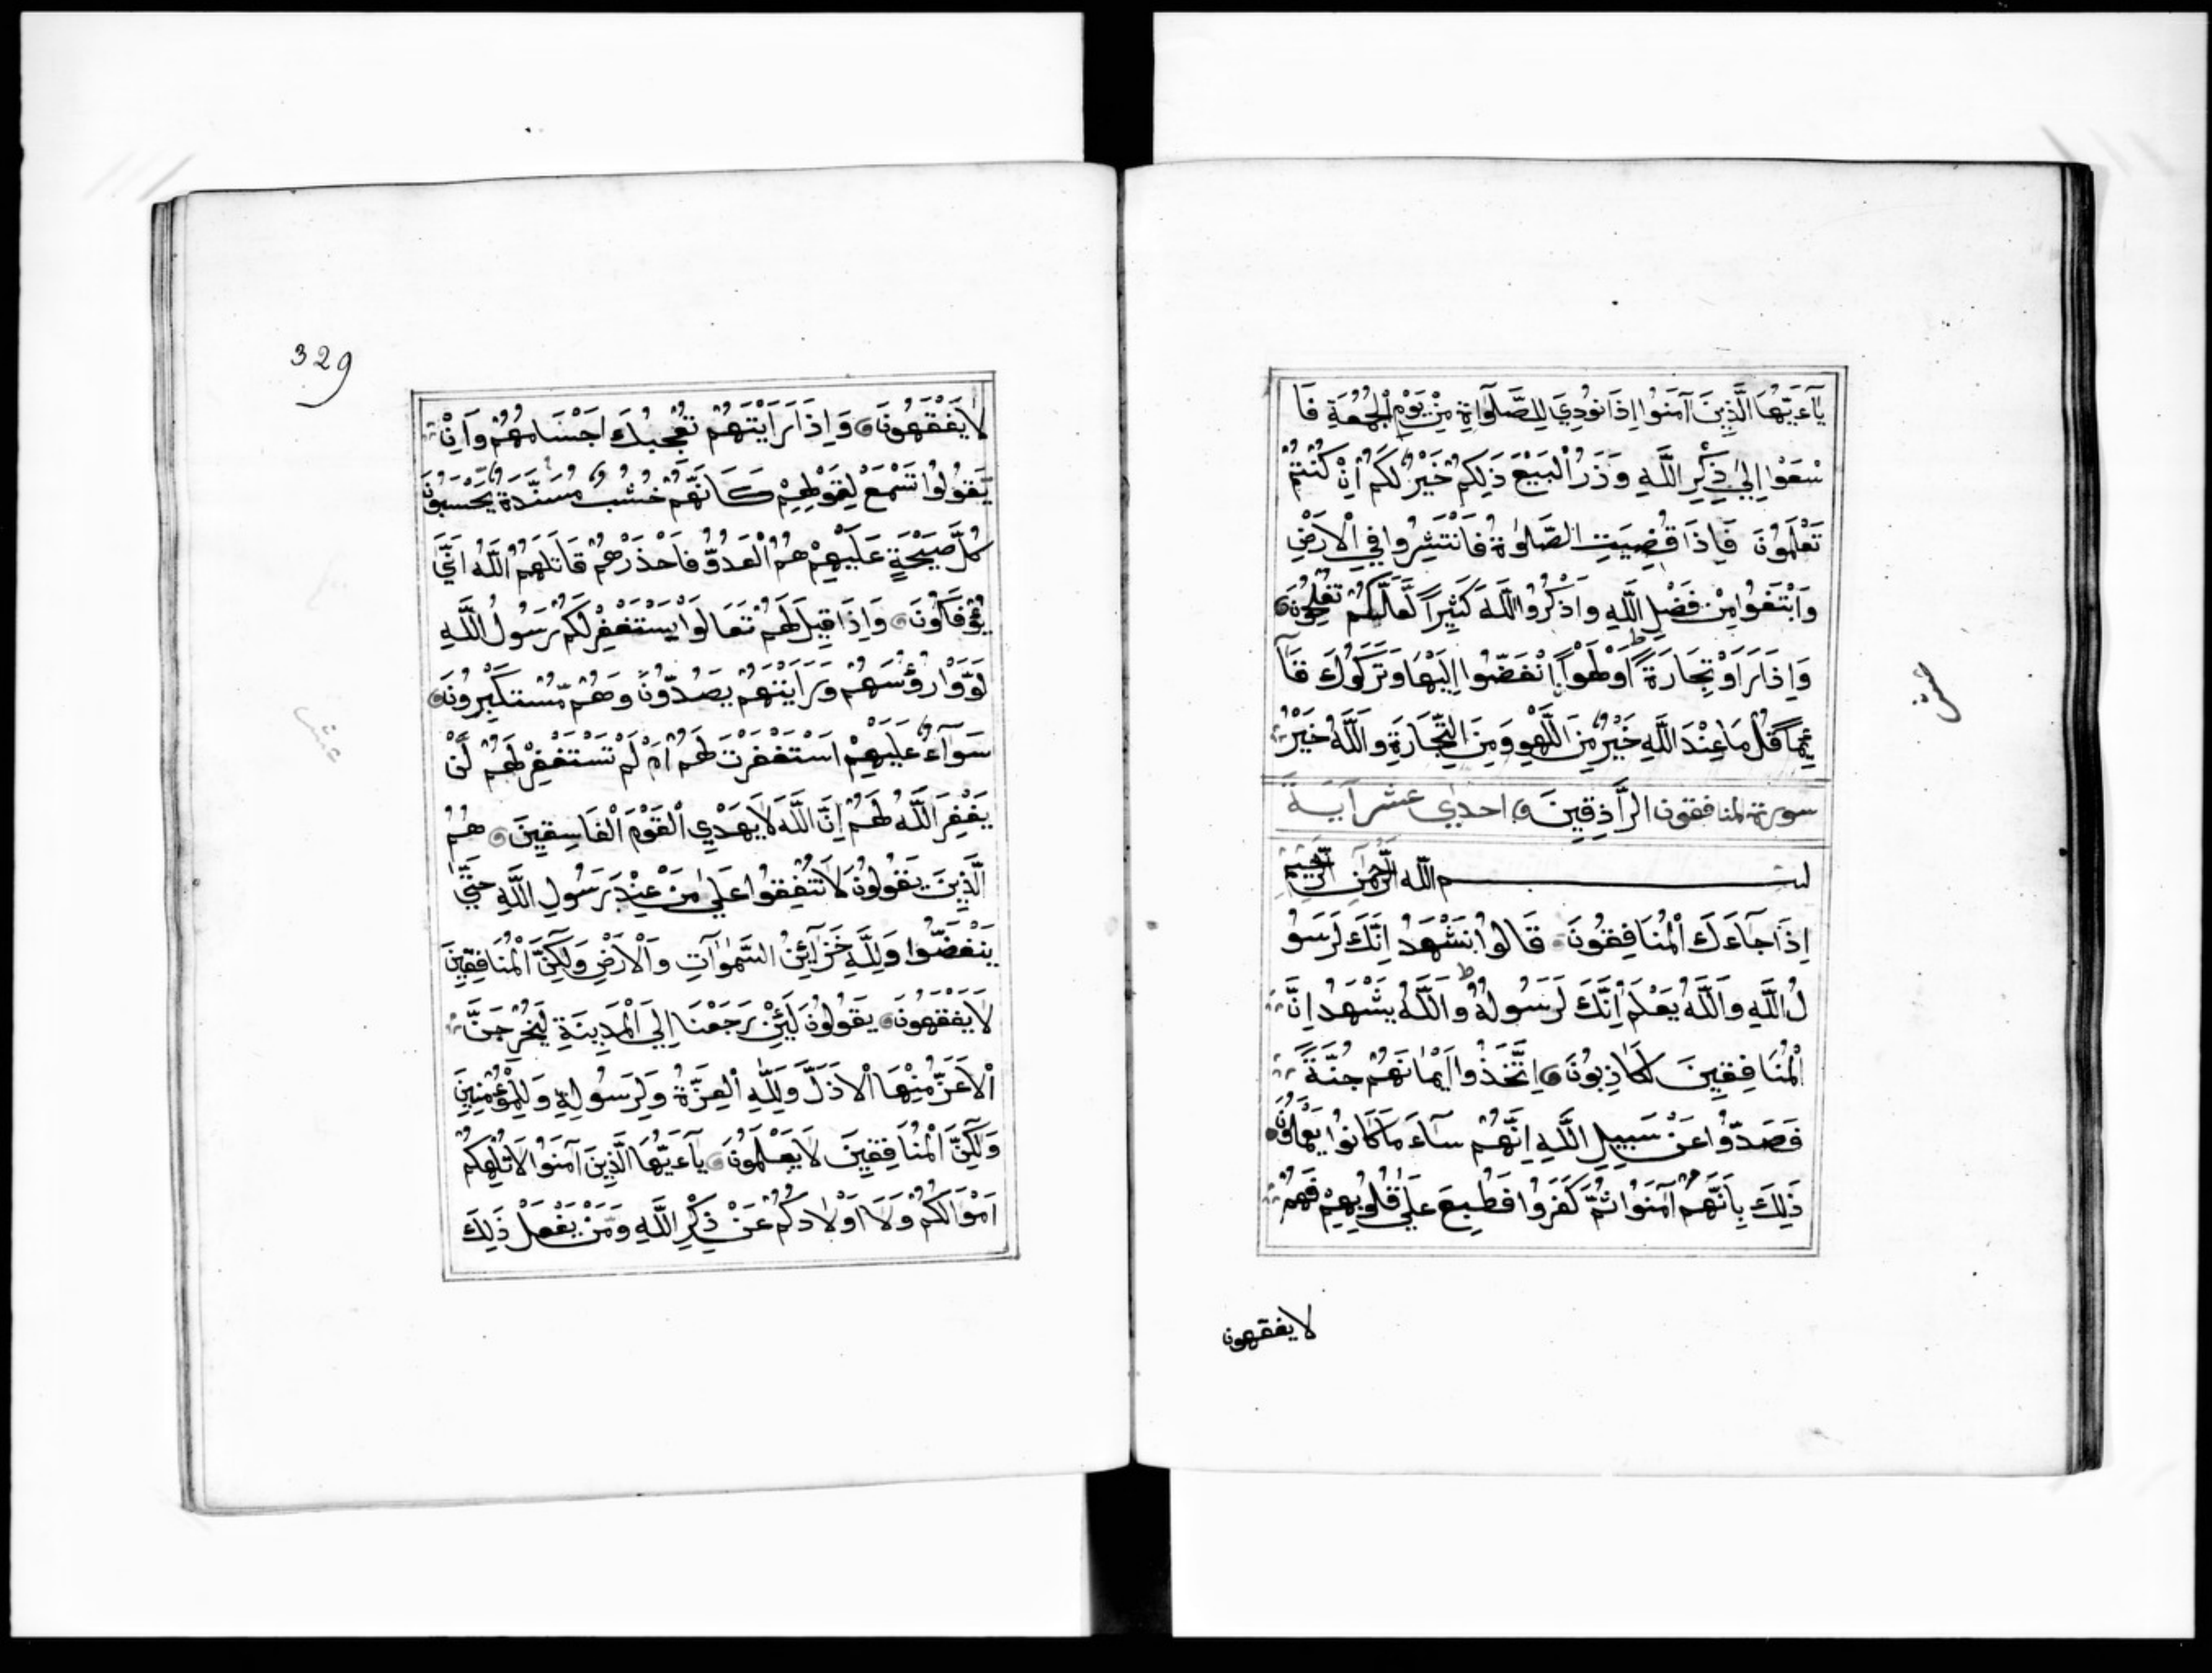 يَآءَيُّهَا الَّذِينَ آمَنُوا اِذَا نُودِيَ لِلصَّلَوٰاةِ مِنْ يَوْمِ الْجُمُعَةِ فَا
سْعَوْا اِلىٰ ذِكْرِ اللَّهِ وَذَرُ الْبَيْعَ ذَلِكُمْ خَيْرٌ لَكُمْ اِنْ كُنْتُمْ
تَعْلَمُونَ فَاِذَا قُضِيَتِ الصَّلَوٰةُ فَانْتَشِرُوا فِي الْاَرْضِ
وَابْتَغُوا مِنْ فَضْلِ اللَّهِ وَاذْكُرُوا اللَّهَ كَثِيرًا لَّعَلَّكُمْ تُفْلِحُونَ
وَاِذَا رَاَوْ تِجَارَةً اَوْ لَهْوًا اِنْفَضُّوا اِلَيْهَا وَتَرَكُوكَ قَآ
ئِمًا قُلْ مَا عِنْدَ اللَّهِ خَيْرٌ مِنَ اللَّهْوِ وَمِنَ التِّجَارَةِ وَاللَّهُ خَيْرُ
سورة المنافقون الرَّاذِقِينَ احدي عشر آيَةً
بسم الله الرَّحْمٰنِ الرَّحِيمِ
اِذَا جَآءَكَ الْمُنَافِقُونَ قَالُوا نَشْهَدُ اِنَّكَ لَرَسُو
لُ اللَّهِ وَاللَّهُ يَعْلَمُ اِنَّكَ لَرَسُولُهُ وَاللَّهُ يَشْهَدُ اِنَّ
الْمُنَافِقِينَ لَكَاذِبُونَ اِتَّخَذُوا اَيْمَانَهُمْ جُنَّةً
فَصَدُّوا عَنْ سَبِيلِ اللَّهِ اِنَّهُمْ سَآءَ مَا كَانُوا يَعْمَلُونَ
ذَلِكَ بِاَنَّهُمْ آمَنُوا ثُمَّ كَفَرُوا فَطُبِعَ عَلىٰ قُلُوبِهِمْ فَهُمْ
لا يفقهون
عشر
329
لَا يَفْقَهُونَ وَاِذَا رَاَيْتَهُمْ تُعْجِبُكَ اَجْسَامُهُمْ وَاِنْ
يَّقُولُوا تَسْمَعْ لِقَوْلِهِمْ كَاَنَّهُمْ خُشُبٌ مُسَنَّدَةٌ يَحْسَبُونَ
كُلَّ صَيْحَةٍ عَلَيْهِمْ هُمُ الْعَدُوُّ فَاحْذَرْهُمْ قَاتَلَهُمُ اللَّهُ اَنّىٰ
يُؤْفَكُونَ وَاِذَا قِيلَ لَهُمْ تَعَالَوْا يَسْتَغْفِرْ لَكُمْ رَسُولُ اللَّهِ
لَوَّوْا رُؤُسَهُمْ وَرَاَيْتَهُمْ يَصُدُّونَ وَهُمْ مُّسْتَكْبِرُونَ
سَوَآءٌ عَلَيْهِمْ اَسْتَغْفَرْتَ لَهُمْ اَمْ لَمْ تَسْتَغْفِرْ لَهُمْ لَنْ
يَغْفِرَ اللَّهُ لَهُمْ اِنَّ اللَّهَ لَا يَهْدِي الْقَوْمَ الْفَاسِقِينَ هُمُ
الَّذِينَ يَقُولُونَ لَا تُنْفِقُوا عَلىٰ مَنْ عِنْدَ رَسُولِ اللَّهِ حَتّىٰ
يَنْفَضُّوا وَلِلَّهِ خَزَآئِنُ السَّمٰوَاتِ وَالْاَرْضِ وَلَكِنَّ الْمُنَافِقِينَ
لَا يَفْقَهُونَ يَقُولُونَ لَئِنْ رَجَعْنَا اِلَي الْمَدِينَةِ لَيُخْرِجَنَّ
الْاَعَزُّ مِنْهَا الْاَذَلَّ وَلِلَّهِ الْعِزَّةُ وَلِرَسُولِهِ وَلِلْمُؤْمِنِينَ
وَلَكِنَّ الْمُنَافِقِينَ لَا يَعْلَمُونَ يَآءَيُّهَا الَّذِينَ آمَنُوا لَا تُلْهِكُمْ
اَمْوَالُكُمْ وَلَا اَوْلَادُكُمْ عَنْ ذِكْرِ اللَّهِ وَمَنْ يَفْعَلْ ذَلِكَ